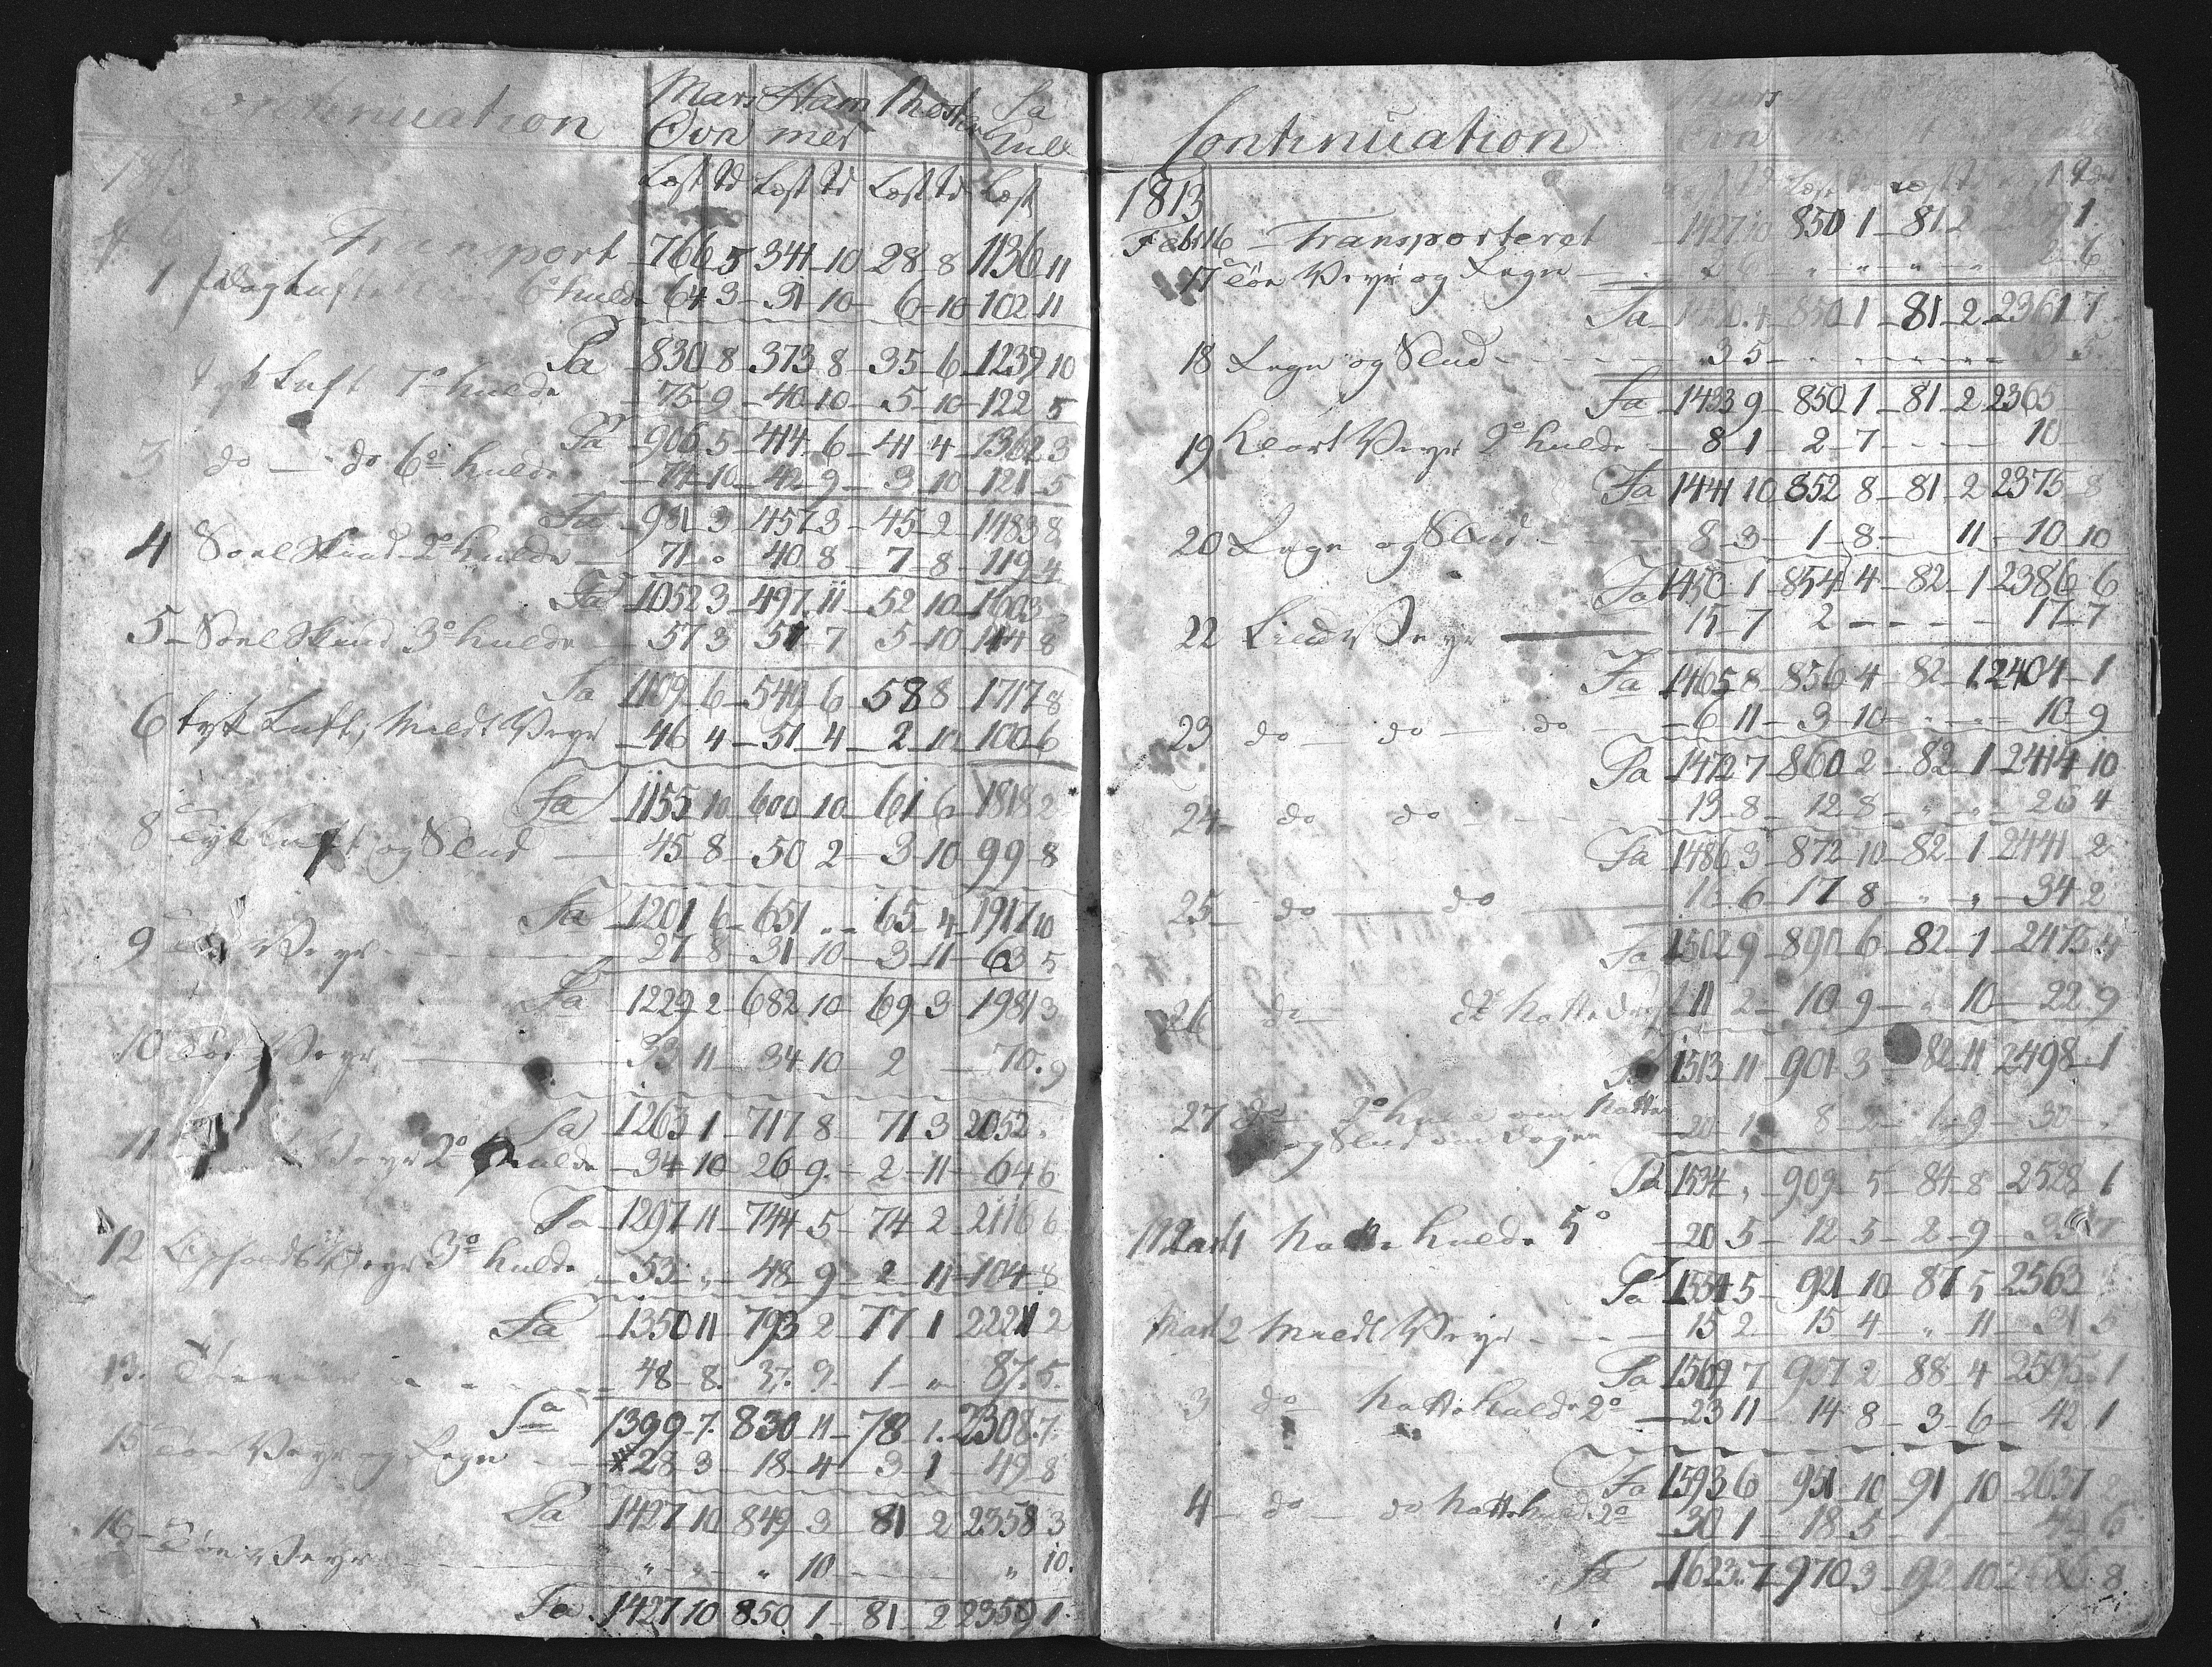 Continuation Mars Ham Masten Sa
Øvn mer hull
1813 Læst Td Læst Td Læst Td Læst
Transport 766 5 344 10 28 8 1136 11
1 6° kulde 64 3 31 10 6 10 102 11
Sa 830 8 373 8 35 6 1239 10
tyk Luft 7° kulde 75 9 40 10 5 10 122 5
Sa 906 5 414 6 41 4 1362 3
3 do — do 6° kulde 74 10 42 9 3 10 121 5
Sa 981 3 457 3 45 2 1483 8
4 Soelskind 2° kulde 71 " 40 8 7 8 119 4
Sa 1052 3 497 11 52 10 1603
5 Soelskind 3° kulde 57 3 51 7 5 10 114 8
Sa 1109 6 549 6 58 8 1717 8
6 tyk Luft, Mildt Veyr 46 4 51 4 2 10 100 6
Sa 1155 10 600 10 61 6 1818 2
8 Tyk luft og Slud 45 8 50 2 3 10 99 8
Sa 1201 6 651 " 65 4 1917 10
9 Veyr 27 8 31 10 3 11 63 5
Sa 1229 2 682 10 69 3 1981 3
10 Tør Veyr 33 11 34 10 2 70 9
Sa 1263 1 717 8 71 3 2052 "
11 Veyr 2° kulde 34 10 26 9 2 11 64 6
Sa 1297 11 744 5 74 2 2116 6
12 Opholds Veyr 3° kulde 53 " 48 9 2 11 104 8
Sa 1350 11 793 2 77 1 2221 2
13. 48 8 37 9 1 " 87 5
Sa 1399 7 830 11 78 1 2308 7
15 Tør Veyr og Regn 28 3 18 4 3 1 49 8
Sa 1427 10 849 3 81 2 2358 3
16 Tør Veyr " " " 10 " 10
Sa 1427 10 850 1 81 2 2359 1
Continuation Mars
1813
Febr 16 Transporteret 1427 10 850 1 81 2 1
17 Tør Veyr og Regn 2 6 " " " " 2 6
Sa 850 1 81 2 2361 7
18 Regn og Slud 3 5 3 5
Sa 1433 9 850 1 81 2 2365
19 Klart Veyr 2° kulde 8 1 2 7 10
Sa 1441 10 852 8 81 2 2375 8
20 Regn og Slud 8 3 1 8 11 10 10
Sa 1450 1 854 4 82 1 2386 6
22 Mildt Veyr 15 7 2 17 7
Sa 1465 8 856 4 82 1 2404 1
23 do — do — do 6 11 3 10 " " 10 9
Sa 1472 7 860 2 82 1 2414 10
24 do do 13 8 12 8 " " 26 4
Sa 1486 3 872 10 82 1 2441 2
25 do do 16 6 17 8 " " 34 2
Sa 1502 9 890 6 82 1 2475 4
26 do 11 2 10 9 " 10 22 9
Sa 1513 11 901 3 82 11 2498 1
27 do 2° kulde om Natten
og Slud om Dagen 20 1 8 2 1 9 30 "
Sa 1534 " 909 5 84 8 2528 1
Mart 1 Natte kulde 5° 20 5 12 5 2 9 35 7
Sa 1554 5 921 10 87 5 2563
Mart 2 Mildt Veyr 15 2 15 4 " 11 31 5
Sa 1569 7 937 2 88 4 2595 1
3 do Natte Kulde 2° 23 11 14 8 3 6 42 1
Sa 1593 6 951 10 91 10 2637
4 do — do Natte kulde 2° 30 1 18 5 1 49 6
Sa 1623 7 970 3 92 10 2686 8